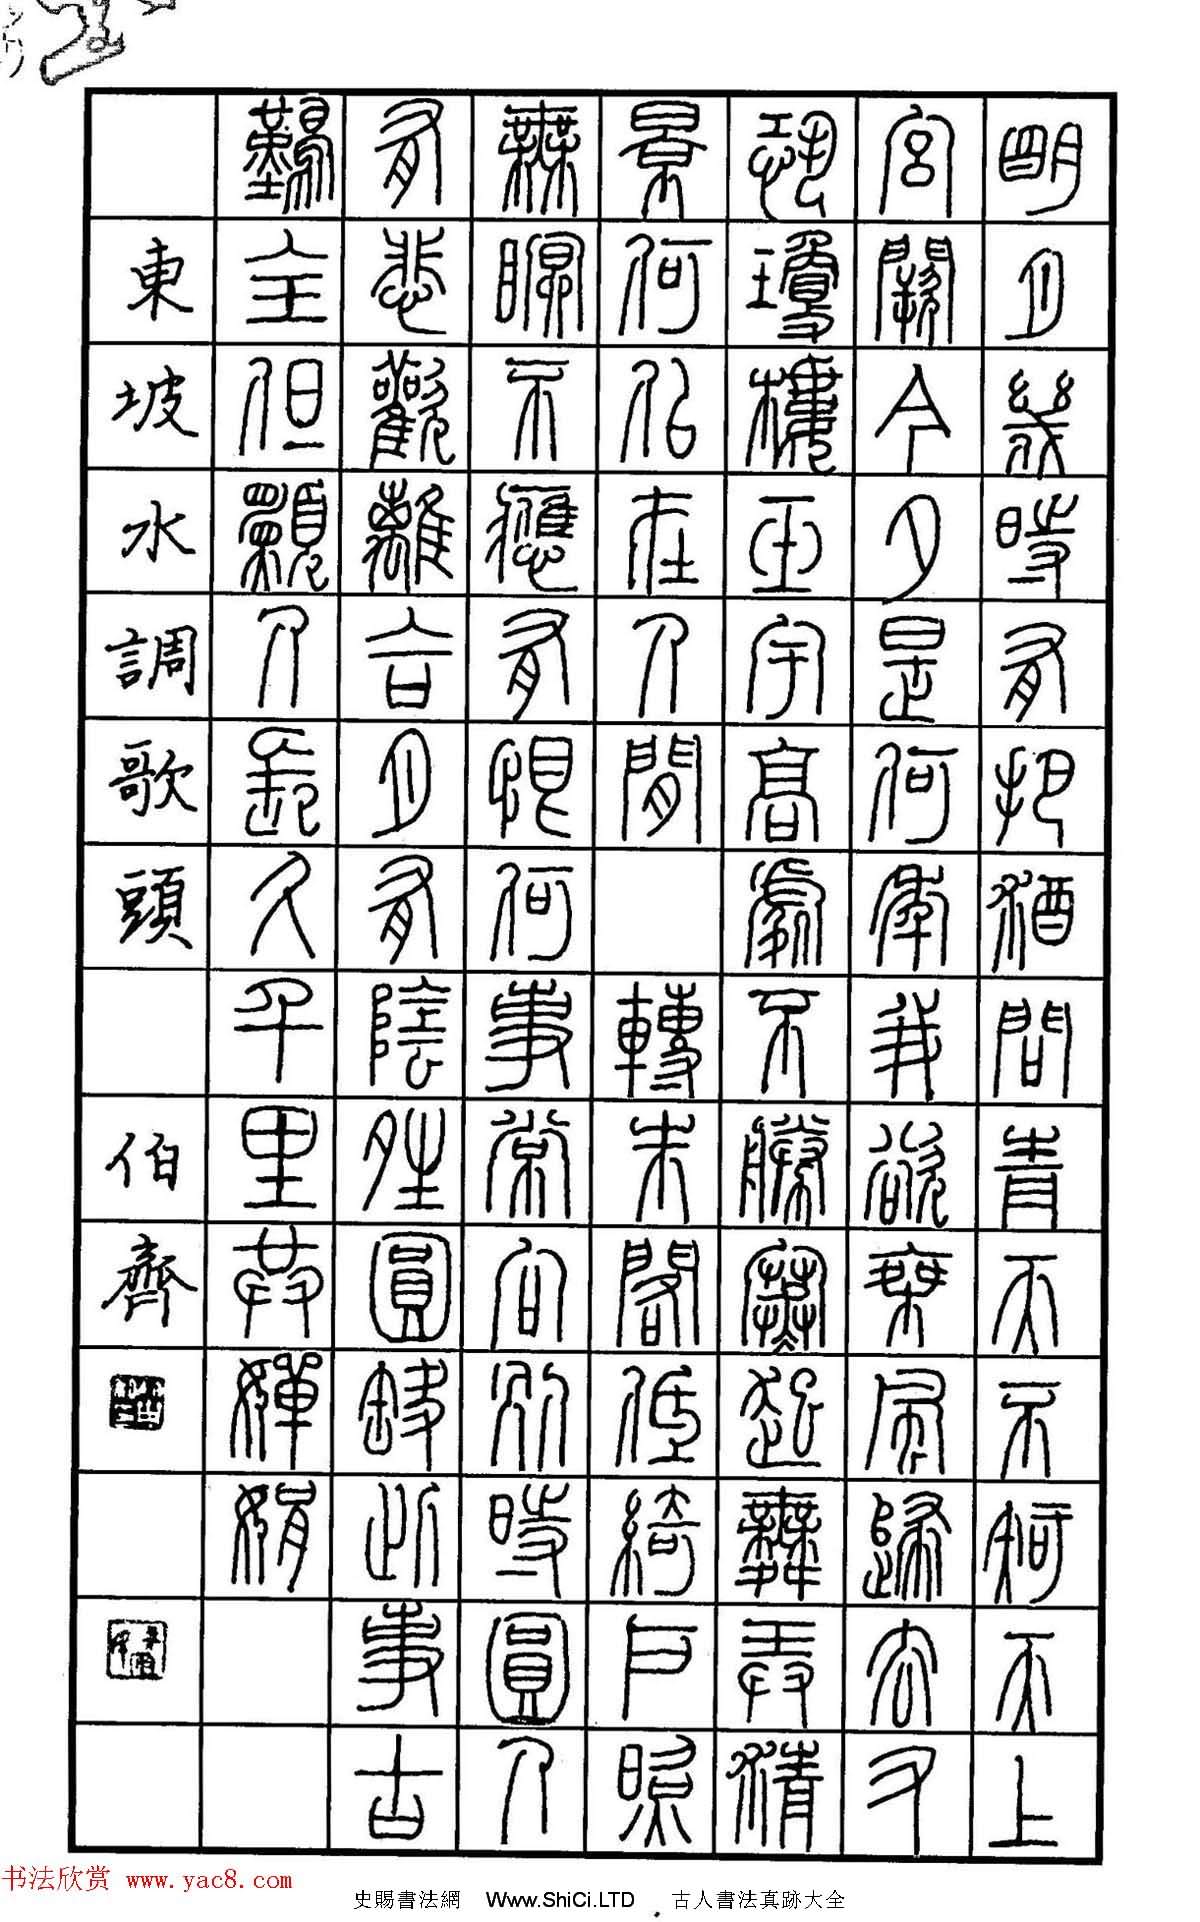 明月幾時有把酒問青天不知天上
宮闕今夕是何年我欲乘風歸去又
恐瓊樓玉宇高處不勝寒起舞弄清
景何似在人間 轉朱閣低綺戶照
無眠不應有恨何事常向別時圓人
有悲歡離合月有陰晴圓缺此事古
難全但願人長久千里共嬋娟
東坡水調歌頭 伯齊
书法欣赏 www.yac8.com
史賜書法網 Www.ShiCi.LTD . 古人書法真跡大全